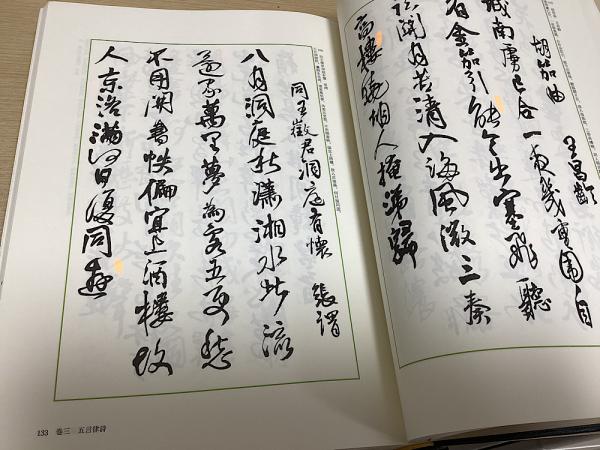 胡笳曲 王昌齡
城南虜已合一夜幾重圍自
有金笳引能令出塞飛聽
臨關月苦清入海風微三奏
高樓曉胡人掩涕歸
同王徵君洞庭有懷 張謂
八月洞庭秋瀟湘水北流
還家萬里夢為客五更愁
不用開書帙偏宜上酒樓故
人京洛滿何日復同遊
133 卷三 五言律詩